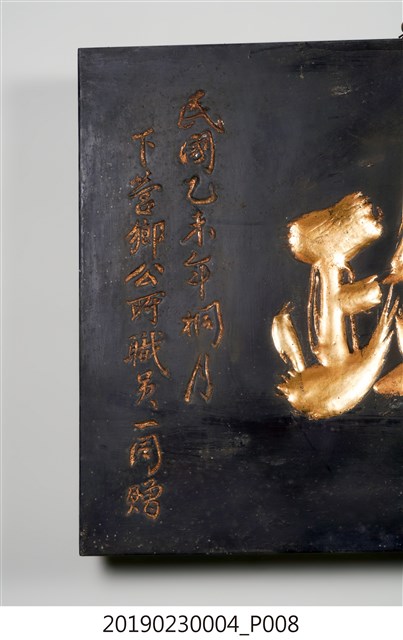 民國乙未年桐月
下營鄉公所職員一同贈
20190230004_P008